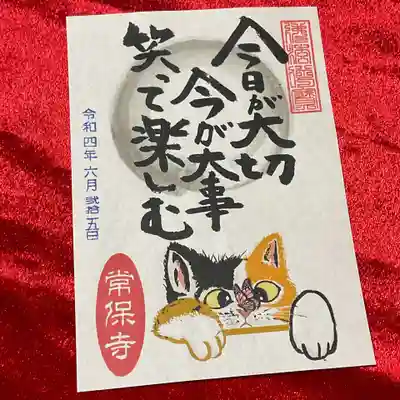 今日が大切
今が大事
笑って楽しむ
令和四年 六月 弐拾五日
常保寺